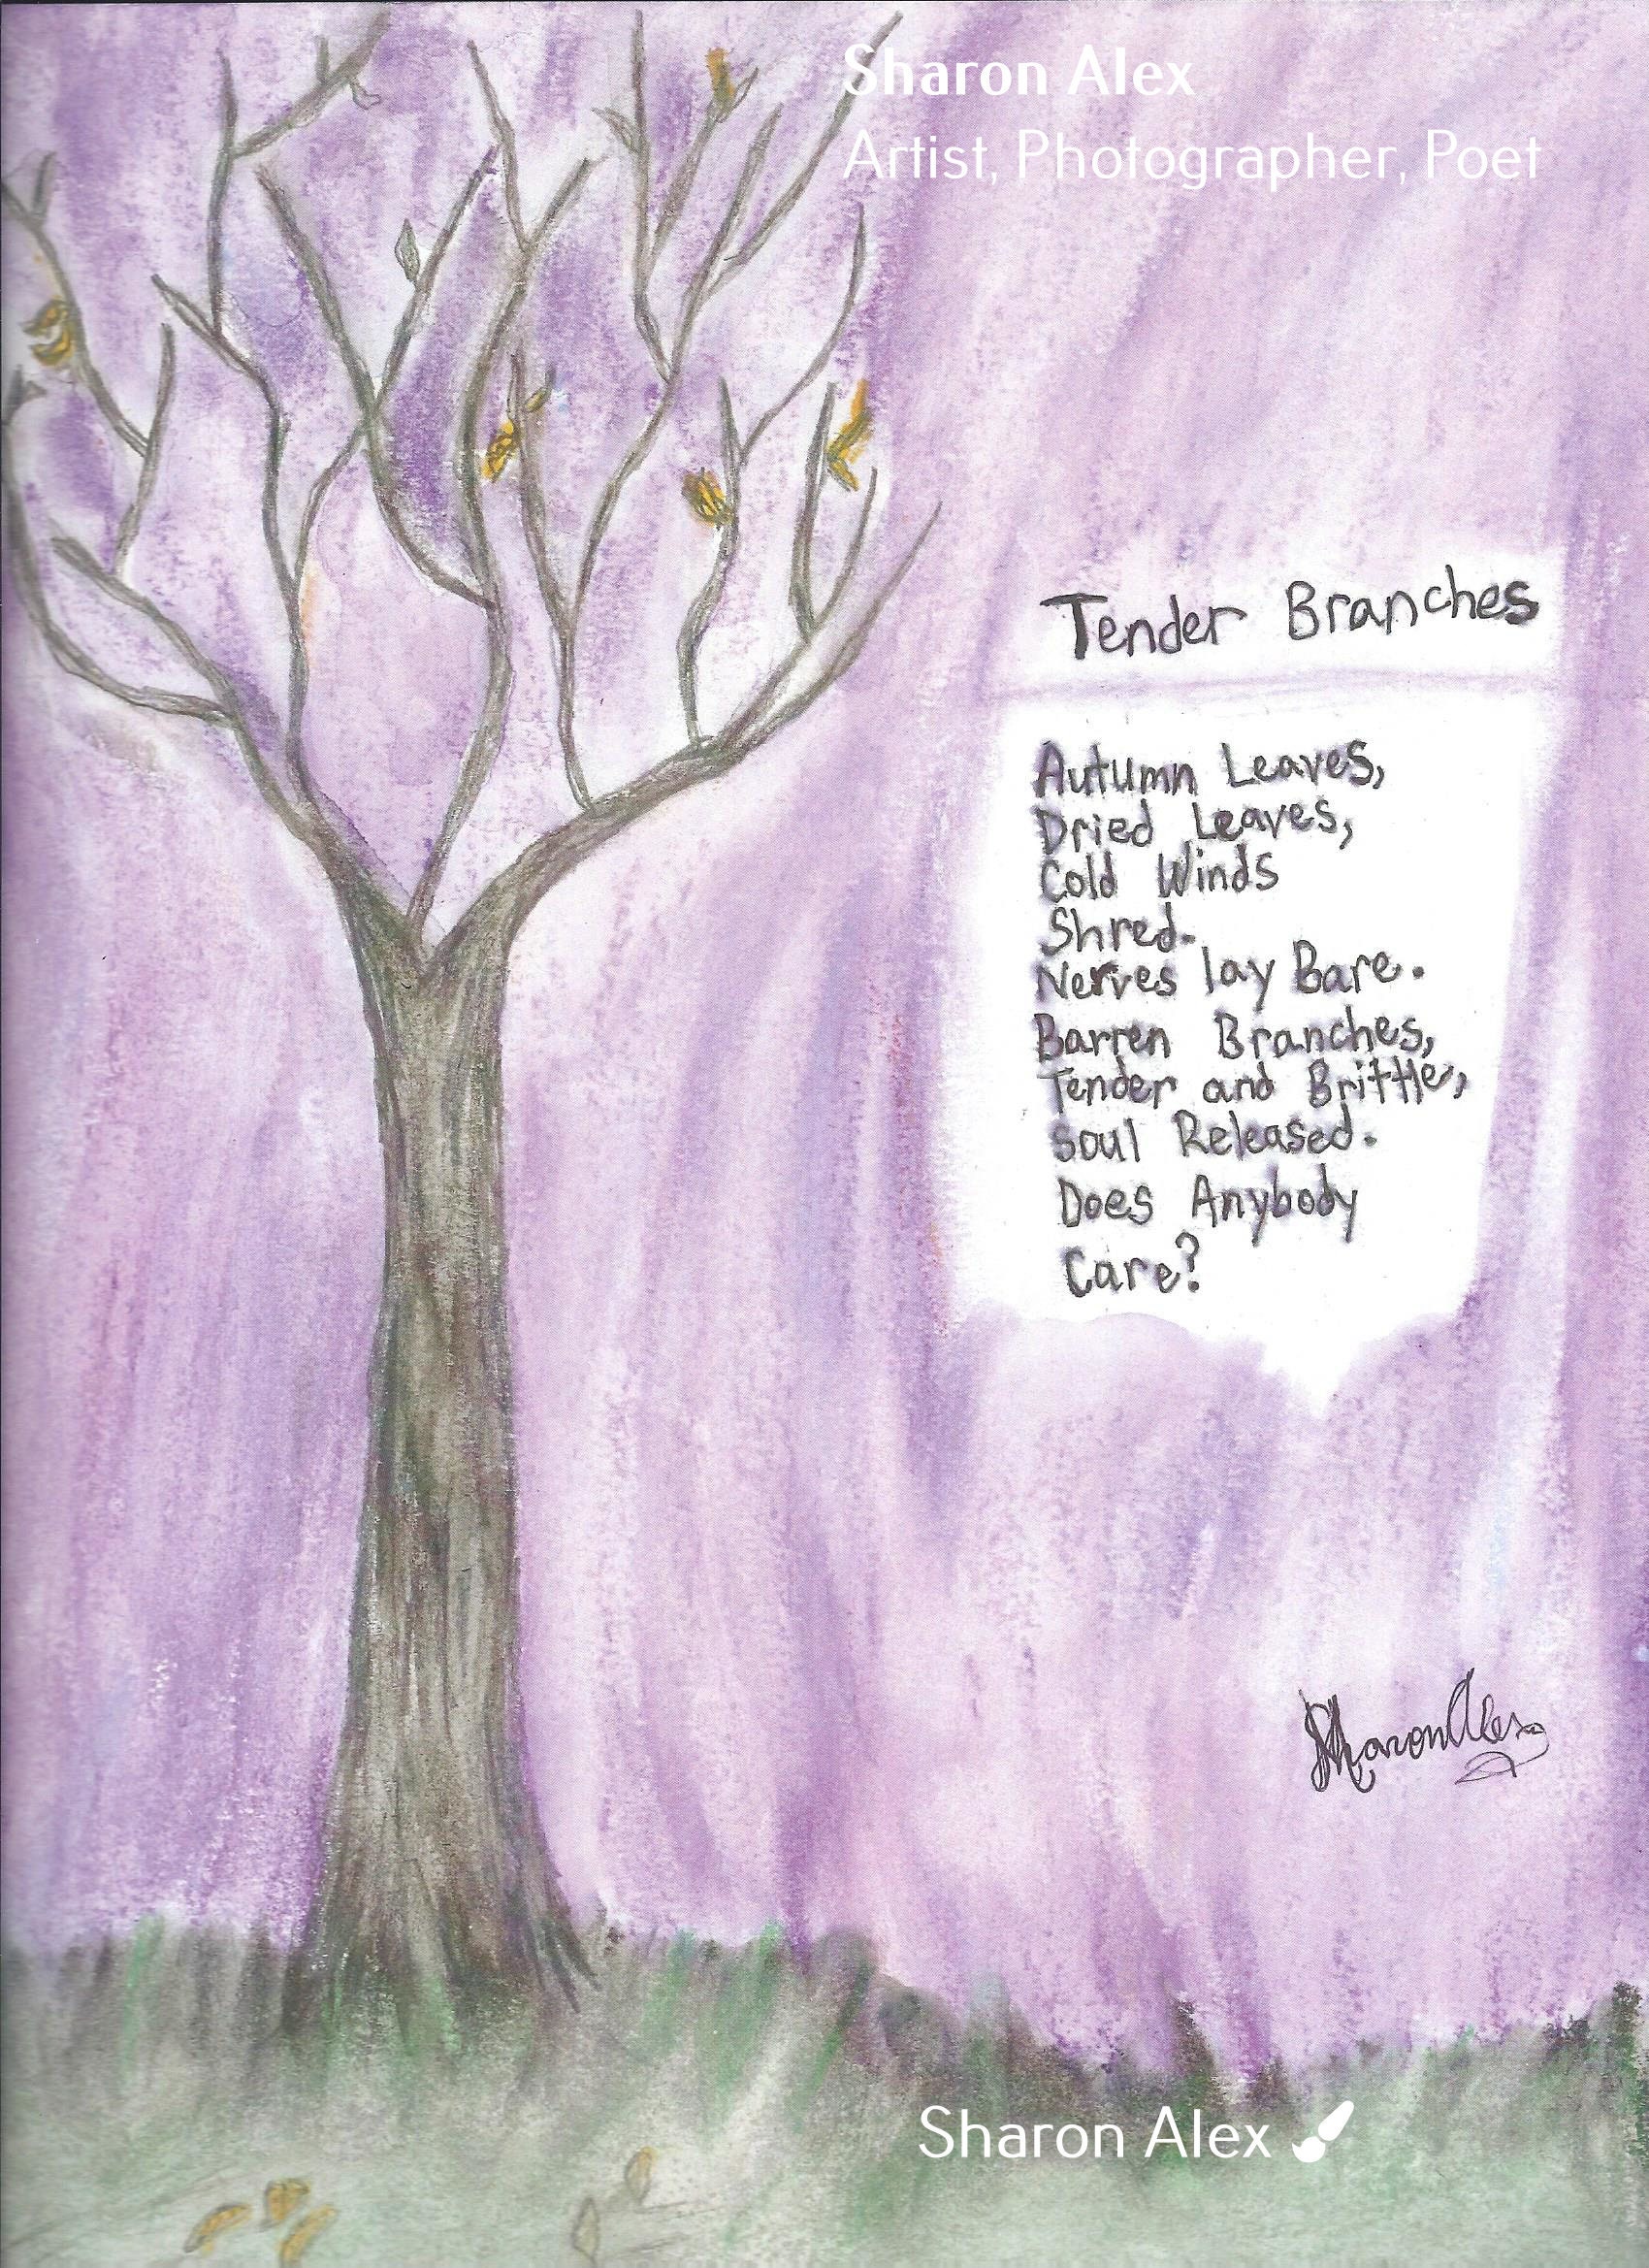 Sharon Alex
Artist, Photographer, Poet
Tender Branches
Autumn Leaves,
Dried Leaves,
Cold Winds
Shred.
Nerves lay Bare.
Barren Branches,
Tender and Brittle,
Soul Released.
Does Anybody
Care?
Sharon Alex
Sharon Alex